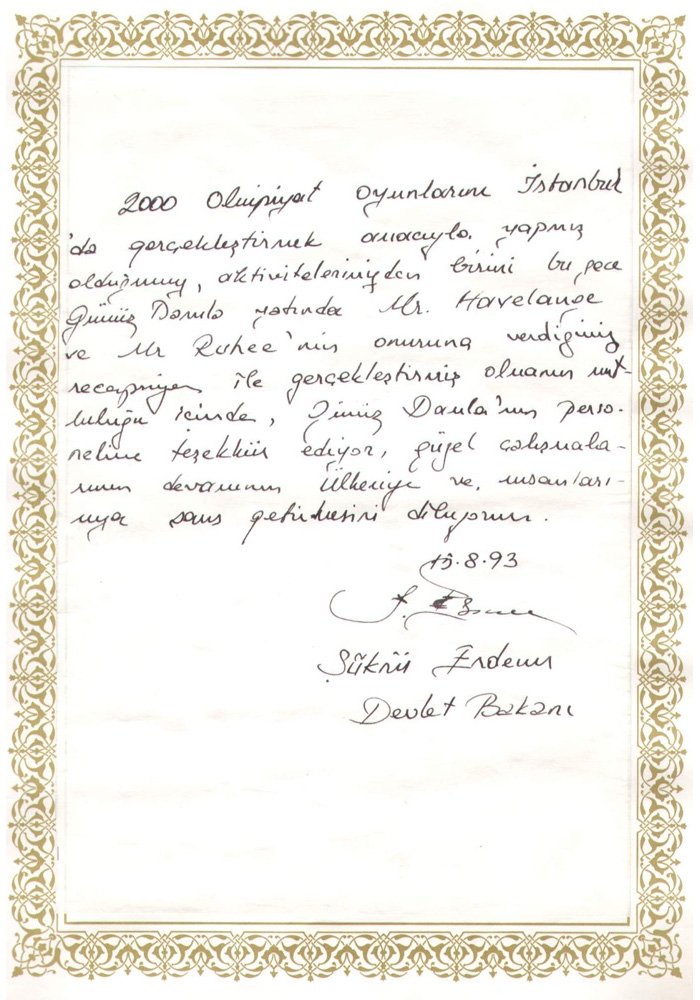 2000 Olimpiyat oyunlarını İstanbul
'da gerçekleştirmek amacıyla yapmış
olduğumuz, aktivitelerimizden birini bu gece
Gümüş Damla yatında Mr. Havelange
ve Mr 'nin onuruna verdiğimiz
resepsiyon ile gerçekleştirmiş olmanın mut-
luluğu içinde, Gümüş Damla'nın perso-
neline teşekkür ediyor, güzel çalışmala-
rının devamının ülkemize ve insanları-
mıza şans getirmesini diliyorum.
.8.93
Şükrü Erdem
Devlet Bakanı